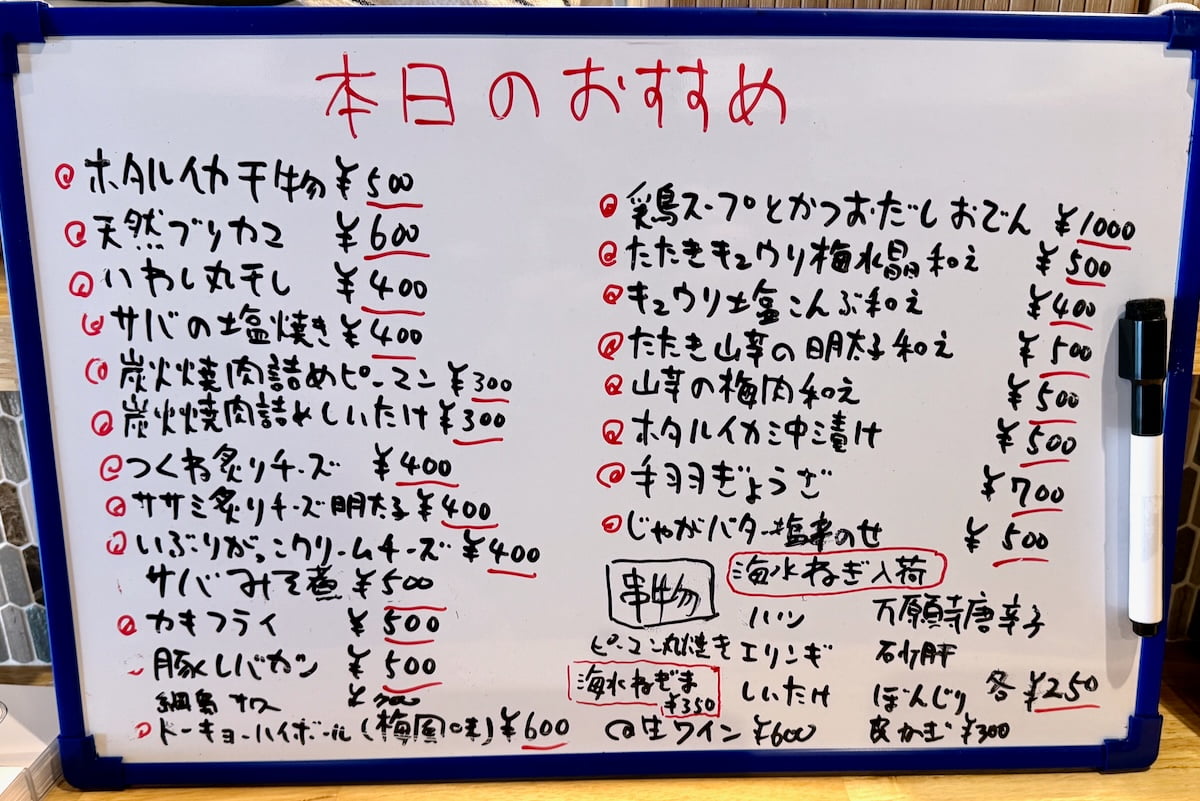 本日のおすすめ
ホタルイカ干物 ¥500
天然ブリカマ ¥600
いわし丸干し ¥400
サバの塩焼き ¥400
炭火焼肉詰めピーマン ¥300
炭火焼肉詰めしいたけ ¥300
つくね炙りチーズ ¥400
ササミ炙りチーズ明太子 ¥400
いぶりがっこクリームチーズ ¥400
サバみそ煮 ¥500
カキフライ ¥500
豚レバカツ ¥500
綱島サワー
トーキョーハイボール(梅風味) ¥600
鶏スープとかつおだしおでん ¥1000
たたきキュウリ梅水晶和え ¥500
キュウリ塩こんぶ和え ¥400
たたき山芋の明太子和え ¥500
山芋の梅肉和え ¥500
ホタルイカ沖漬け ¥500
手羽ぎょうざ ¥700
じゃがバター塩辛のせ ¥500
串物 海水ねぎ入荷
ハツ 万願寺唐辛子
ピーマン丸焼き エリンギ 砂肝
海水ねぎま ¥350 しいたけ ぼんじり 各¥250
生ワイン ¥600 ¥300